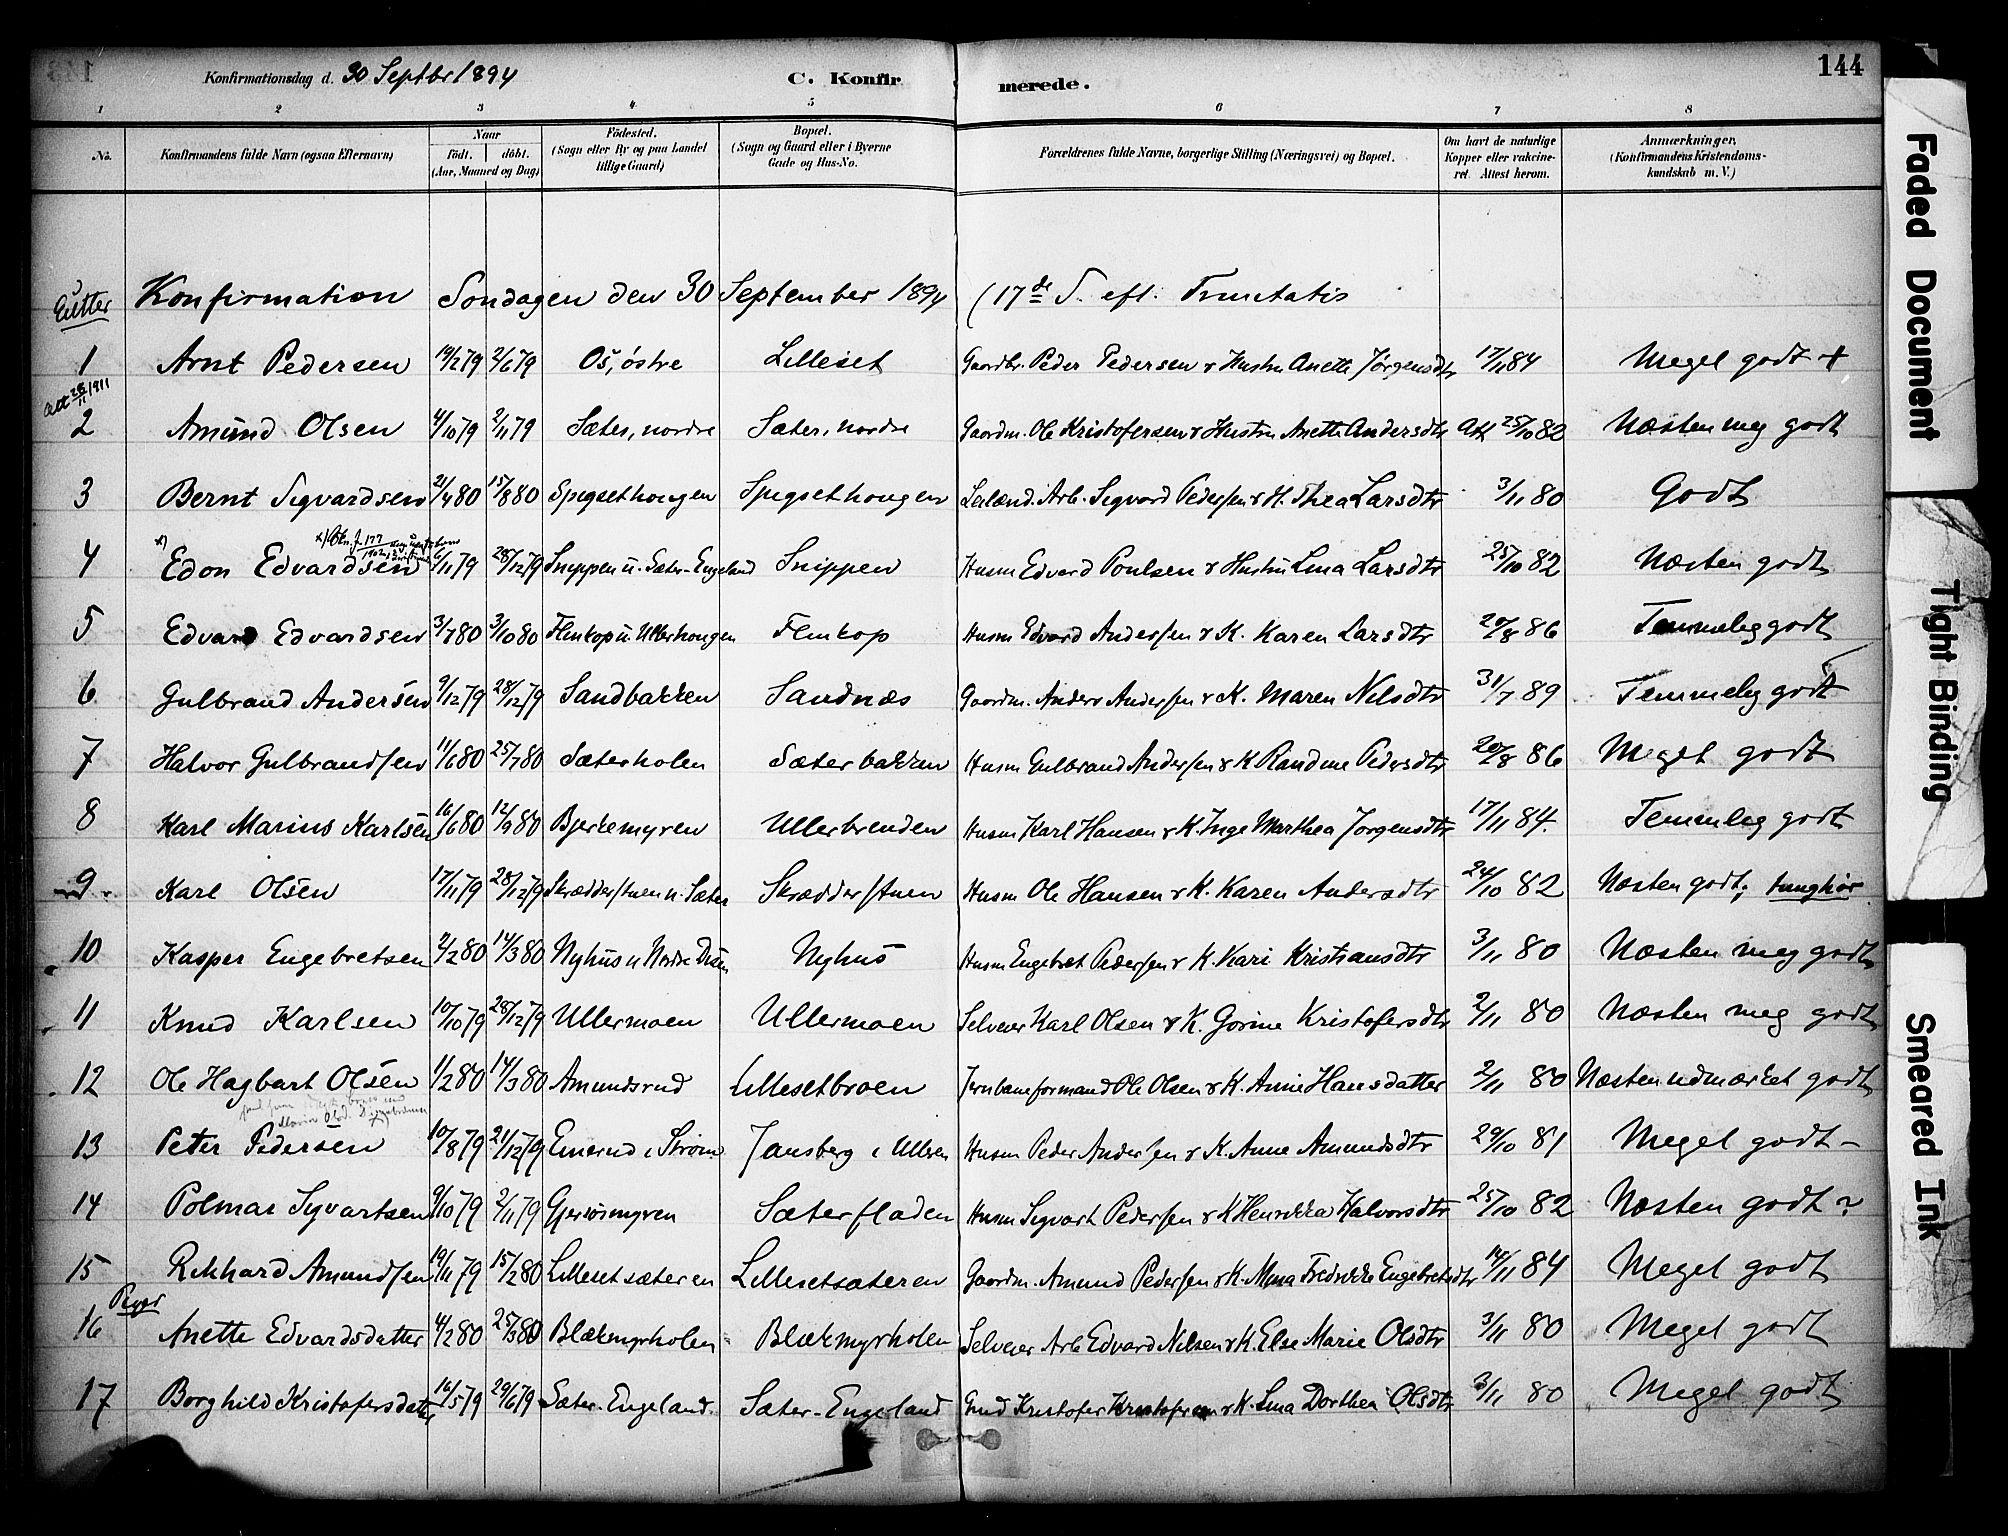 144
Konfirmationsdag d. 30 Septbr 1894 C. Konfirmerede.
1 2 3 4 5 6 7 8
No. Konfirmandens fulde Navn (ogsaa Efternavn) Naar født. døbt. (Aar, Maaned og Dag) Fødested. (Sogn eller By og paa Landet tillige Gaard) Bopæl. (Sogn og Gaard eller i Byerne Gade og Hus-No. Forældrenes fulde Navne, borgerlige Stilling (Næringsvei) og Bopæl. Om havt de naturlige Kopper eller vakcineret. Attest herom. Anmærkninger, (Konfirmandens Kristendomskundskab m. V.)
Gutter Konfirmation Sondagen den 30 September 1894 (17de S. eft. Trinitatis
1 Arnt Pedersen 19/2 79 2/6 79 Os, østre Lilleset Gaardbr. Peder Pedersen & Hustru Anette Jørgensdtr 17/11 84 Meget godt +
Att 28/11 1911
2 Amund Olsen 4/10 79 2/11 79 Sæter, nordre Sæter, nordre Gaardm. Ole Kristofersen & Hustru Anette Andersdtr Att 25/10 82 Næsten meg godt
3 Bernt Sigvardsen 21/4 80 15/8 80 Spigsethougen Spigsethougen Leilænd. Arb. Sigvard Pedersen & H. Thea Larsdtr 3/11 80 Godt
4 x) Edon Edvardsen 6/11 79 28/12 79 Snippen u. Sæter-Engeland Snippen Husm Edvard Poulsen & Hustru Lina Larsdtr 25/10 82 Næsten godt
5 Edvard Edvardsen 3/7 80 3/10 80 Flinkop u Ullerhougen Flinkop Husm Edvard Andersen & K. Karen Larsdtr 20/8 86 Temmelig godt
6 Gulbrand Andersen 9/12 79 28/12 79 Sandbakken Sandnæs Gaardm. Anders Andersen & K. Maren Nilsdtr 31/7 89 Temmelig godt
7 Halvor Gulbrandsen 11/6 80 25/7 80 Sæterholen Sæterbakken Husm Gulbrand Andersen & K Randine Pedersdtr 20/8 86 Meget godt
8 Karl Marius Karlsen 16/6 80 12/9 80 Bjerkemyren Ullerbrenden Husm Karl Hansen & K. Inge Marthea Jorgensdtr 17/11 84. Temmelig godt
9 Karl Olsen 17/11 79 28/12 79 Skrædderstuen u. Sæter Skrædderstuen Husm Ole Hansen & K. Karen Andersdtr 24/10 82 Næsten godt; tunghør
10 Kasper Engebretsen 2/2 80 14/3 80 Nyhus u Nordre Disen Nyhus Husm Engebret Pedersen & K. Kari Kristiansdtr 3/11 80 Næsten meg godt
11 Knud Karlsen 10/10 79 28/12 79 Ullermoen Ullermoen Selveier Karl Olsen & K. Gorine Kristofersdtr 2/11 80 Næsten meg godt
12 Ole Hagbart Olsen 1/2 80 14/3 80 Amundsrud Lillesetbroen Jernbaneformand Ole Olsen & K. Anne Hansdatter 2/11 80 Næsten udmærket godt
13 Peter Pedersen 10/8 79 21/12 79 Emerud i Strøm Jansberg i Ulleren Husm Peder Andersen & K. Anne Amundsdtr 29/10 81 Meget godt –
14 Polmar Sigvartsen 9/10 79 2/11 79 Gjeriosmyren Sæterfladen Husm Sigvart Pedersen & K Henrikka Halvorsdtr 25/10 82 Næsten godt?
15 Rikhard Amundsen 19/11 79 15/2 80 Lillesetsæteren Lillesetsæteren Gaardm. Amund Pedersen & K. Mina Fredrikke Engebretsdtr 14/11 84 Meget godt
Piger
16 Anette Edvardsdatter 4/2 80 25/3 80 Blækmyrholen Blækmyrholen Selveier Arb Edvard Nilsen & K. Else Marie Olsdtr 3/11 80 Meget godt
17 Borghild Kristofersdatter 16/5 79 29/6 79 Sæter-Engeland Sæter-Engeland Gmd Kristofer Kristofersen & K. Lina Dorthea Olsdtr 3/11 80 Meget godt
Faded Document
Tight Binding
Smeared Ink